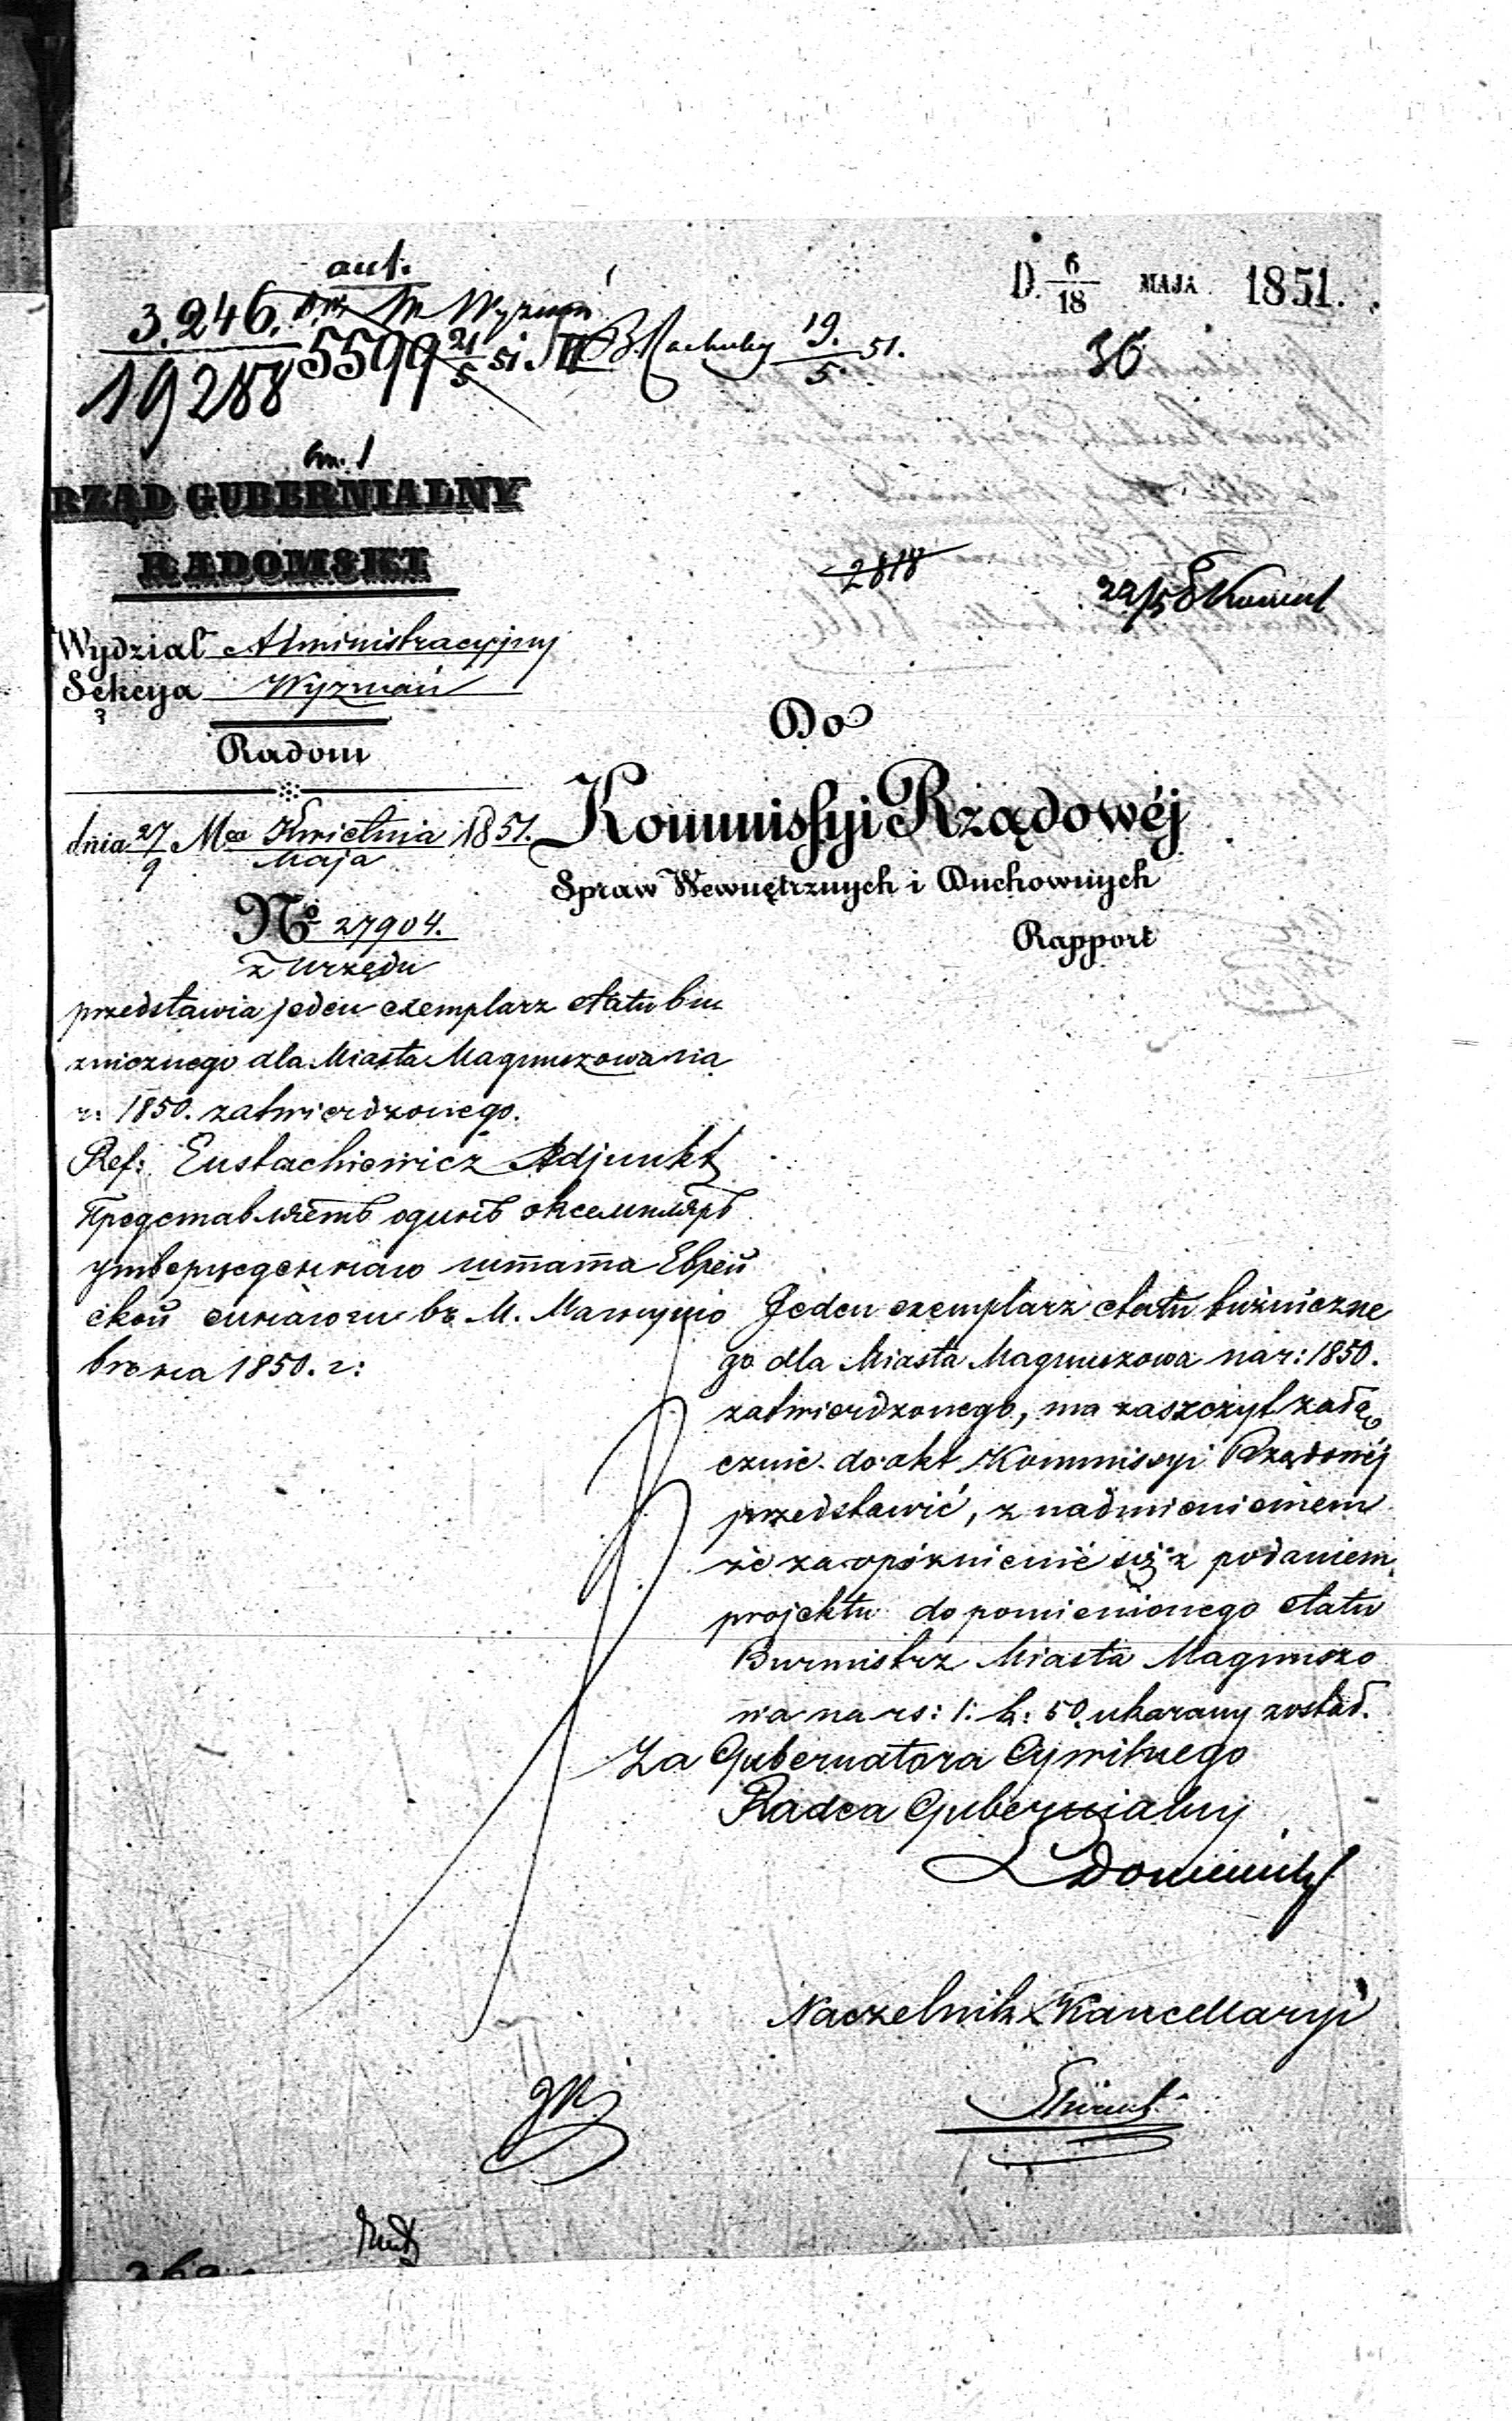 aut.
D. 6/18 MAJA 1851.
3.246.
19288
5599 21/5 51. 19./5 51.
36
RZĄD GUBERNIALNY
RADOMSKI
2818
22/5
Wydział Administracyjny
Sekcya Wyznań
Radom
dnia 27/9 Mca Kwietnia/Maja 1851.
No 27904.
Do
Kommissyi Rządowéj
Spraw Wewnętrznych i Duchownych
Rapport
z urzędu
przedstawia jeden exemplarz etatu bu
znicznego dla Miasta Magnuszowa na
r: 1850. zatwierdzonego.
Ref: Eustachiewicz Adjunkt
Представляетъ одинъ экземпляръ
утвержденнаго штата Еврей
ской синагоги въ М. Магнушо
вѣ на 1850. г:
Jeden exemplarz etatu bużniczne
go dla Miasta Magnuszowa na r: 1850.
zatwierdzonego, ma zaszczyt załą
cznie do akt Kommissyi Rządowéj
przedstawić, z nadmienieniem
że za opóźnienie się z podaniem
projektu do pomienionego etatu
Burmistrz Miasta Magnuszo
wa na rs: 1: k: 50. ukarany został.
Za Gubernatora Cywilnego
Radca Gubernialny
Naczelnik Kancellaryi